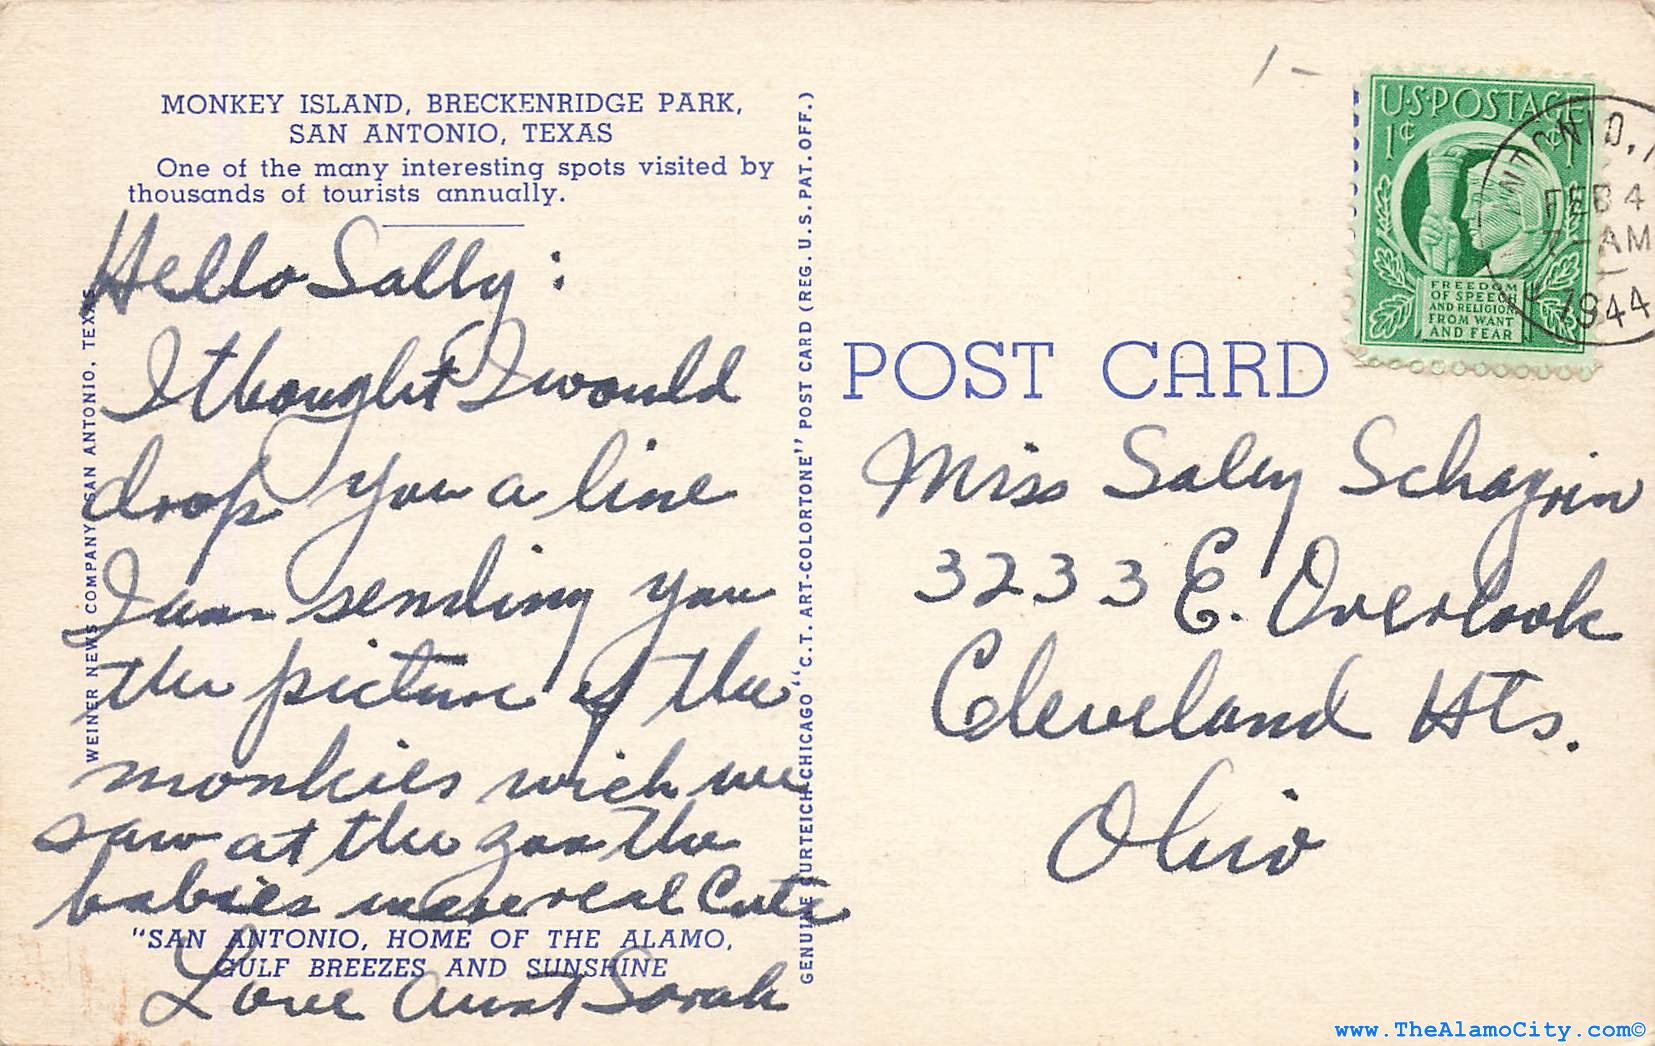 MONKEY ISLAND, BRECKENRIDGE PARK,
SAN ANTONIO, TEXAS
One of the many interesting spots visited by
thousands of tourists annually.
Hello Sally:
I thought I would
drop you a line
I am sending you
the picture of the
monkies wich we
saw at the zoo the
babies were real Cute
"SAN ANTONIO, HOME OF THE ALAMO,
GULF BREEZES AND SUNSHINE
Love Aunt Sarah
WEINER NEWS COMPANY, SAN ANTONIO, TEXAS
GENUINE CURTEICH-CHICAGO "C.T. ART-COLORTONE" POST CARD (REG. U.S. PAT. OFF.)
1 -
U·S·POSTAGE
1¢ 1¢
FREEDOM
OF SPEECH
AND RELIGION,
FROM WANT
AND FEAR
NTONIO,
FEB 4
7-AM
1944
POST CARD
Miss Saley Schagrin
3233 E. Overlook
Cleveland Hts.
Ohio
www.TheAlamoCity.com©